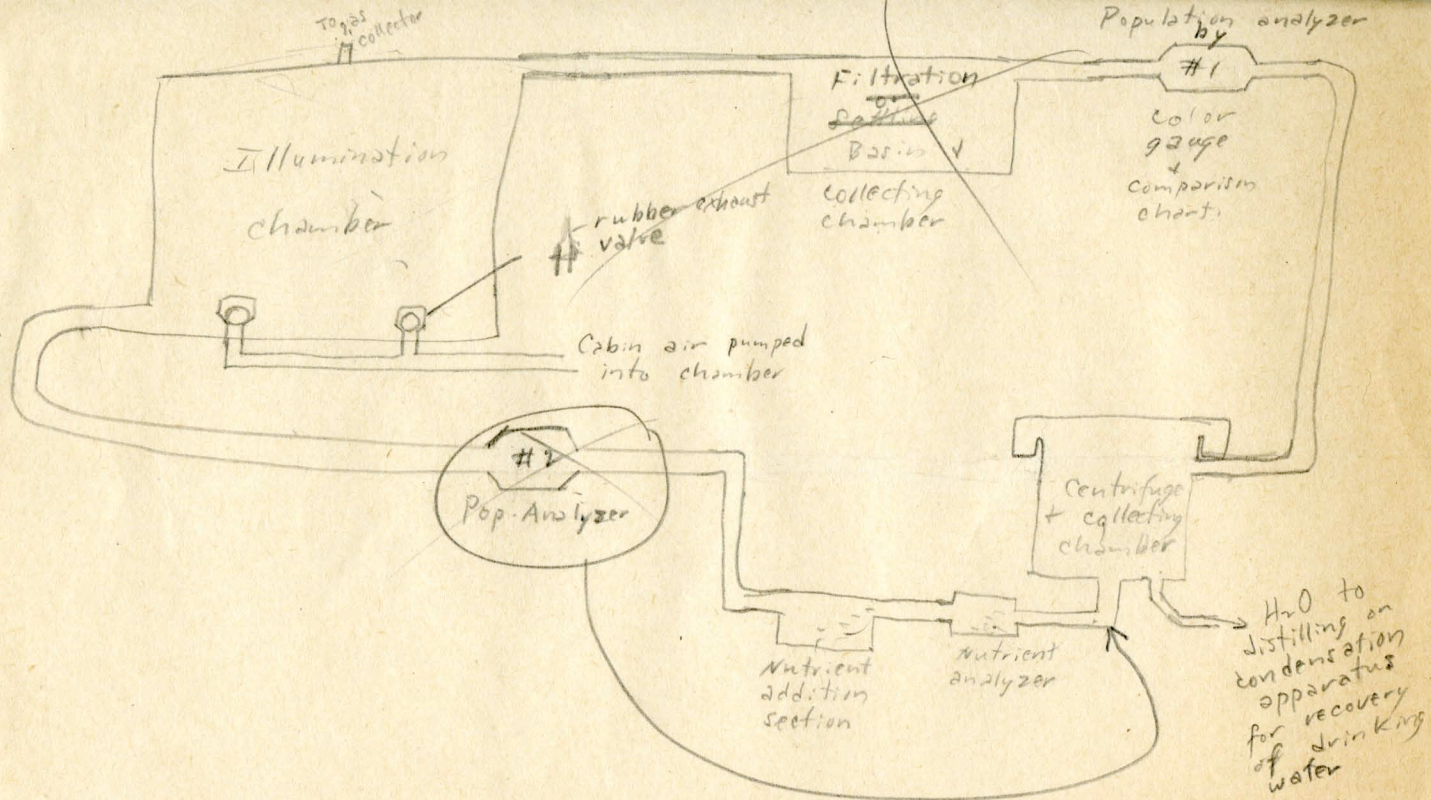 To gas
collector
Population analyzer
by
#1
color
gauge
+
comparison
chart.
Filtration
or
Settling
Basin
collecting
chamber
Illumination
chamber
rubber exhaust
valve
Cabin air pumped
into chamber
#2
Pop. Analyzer
Centrifuge
+ collecting
chamber
Nutrient
addition
section
Nutrient
analyzer
H2O to
distilling or
condensation
apparatus
for recovery
of drinking
water